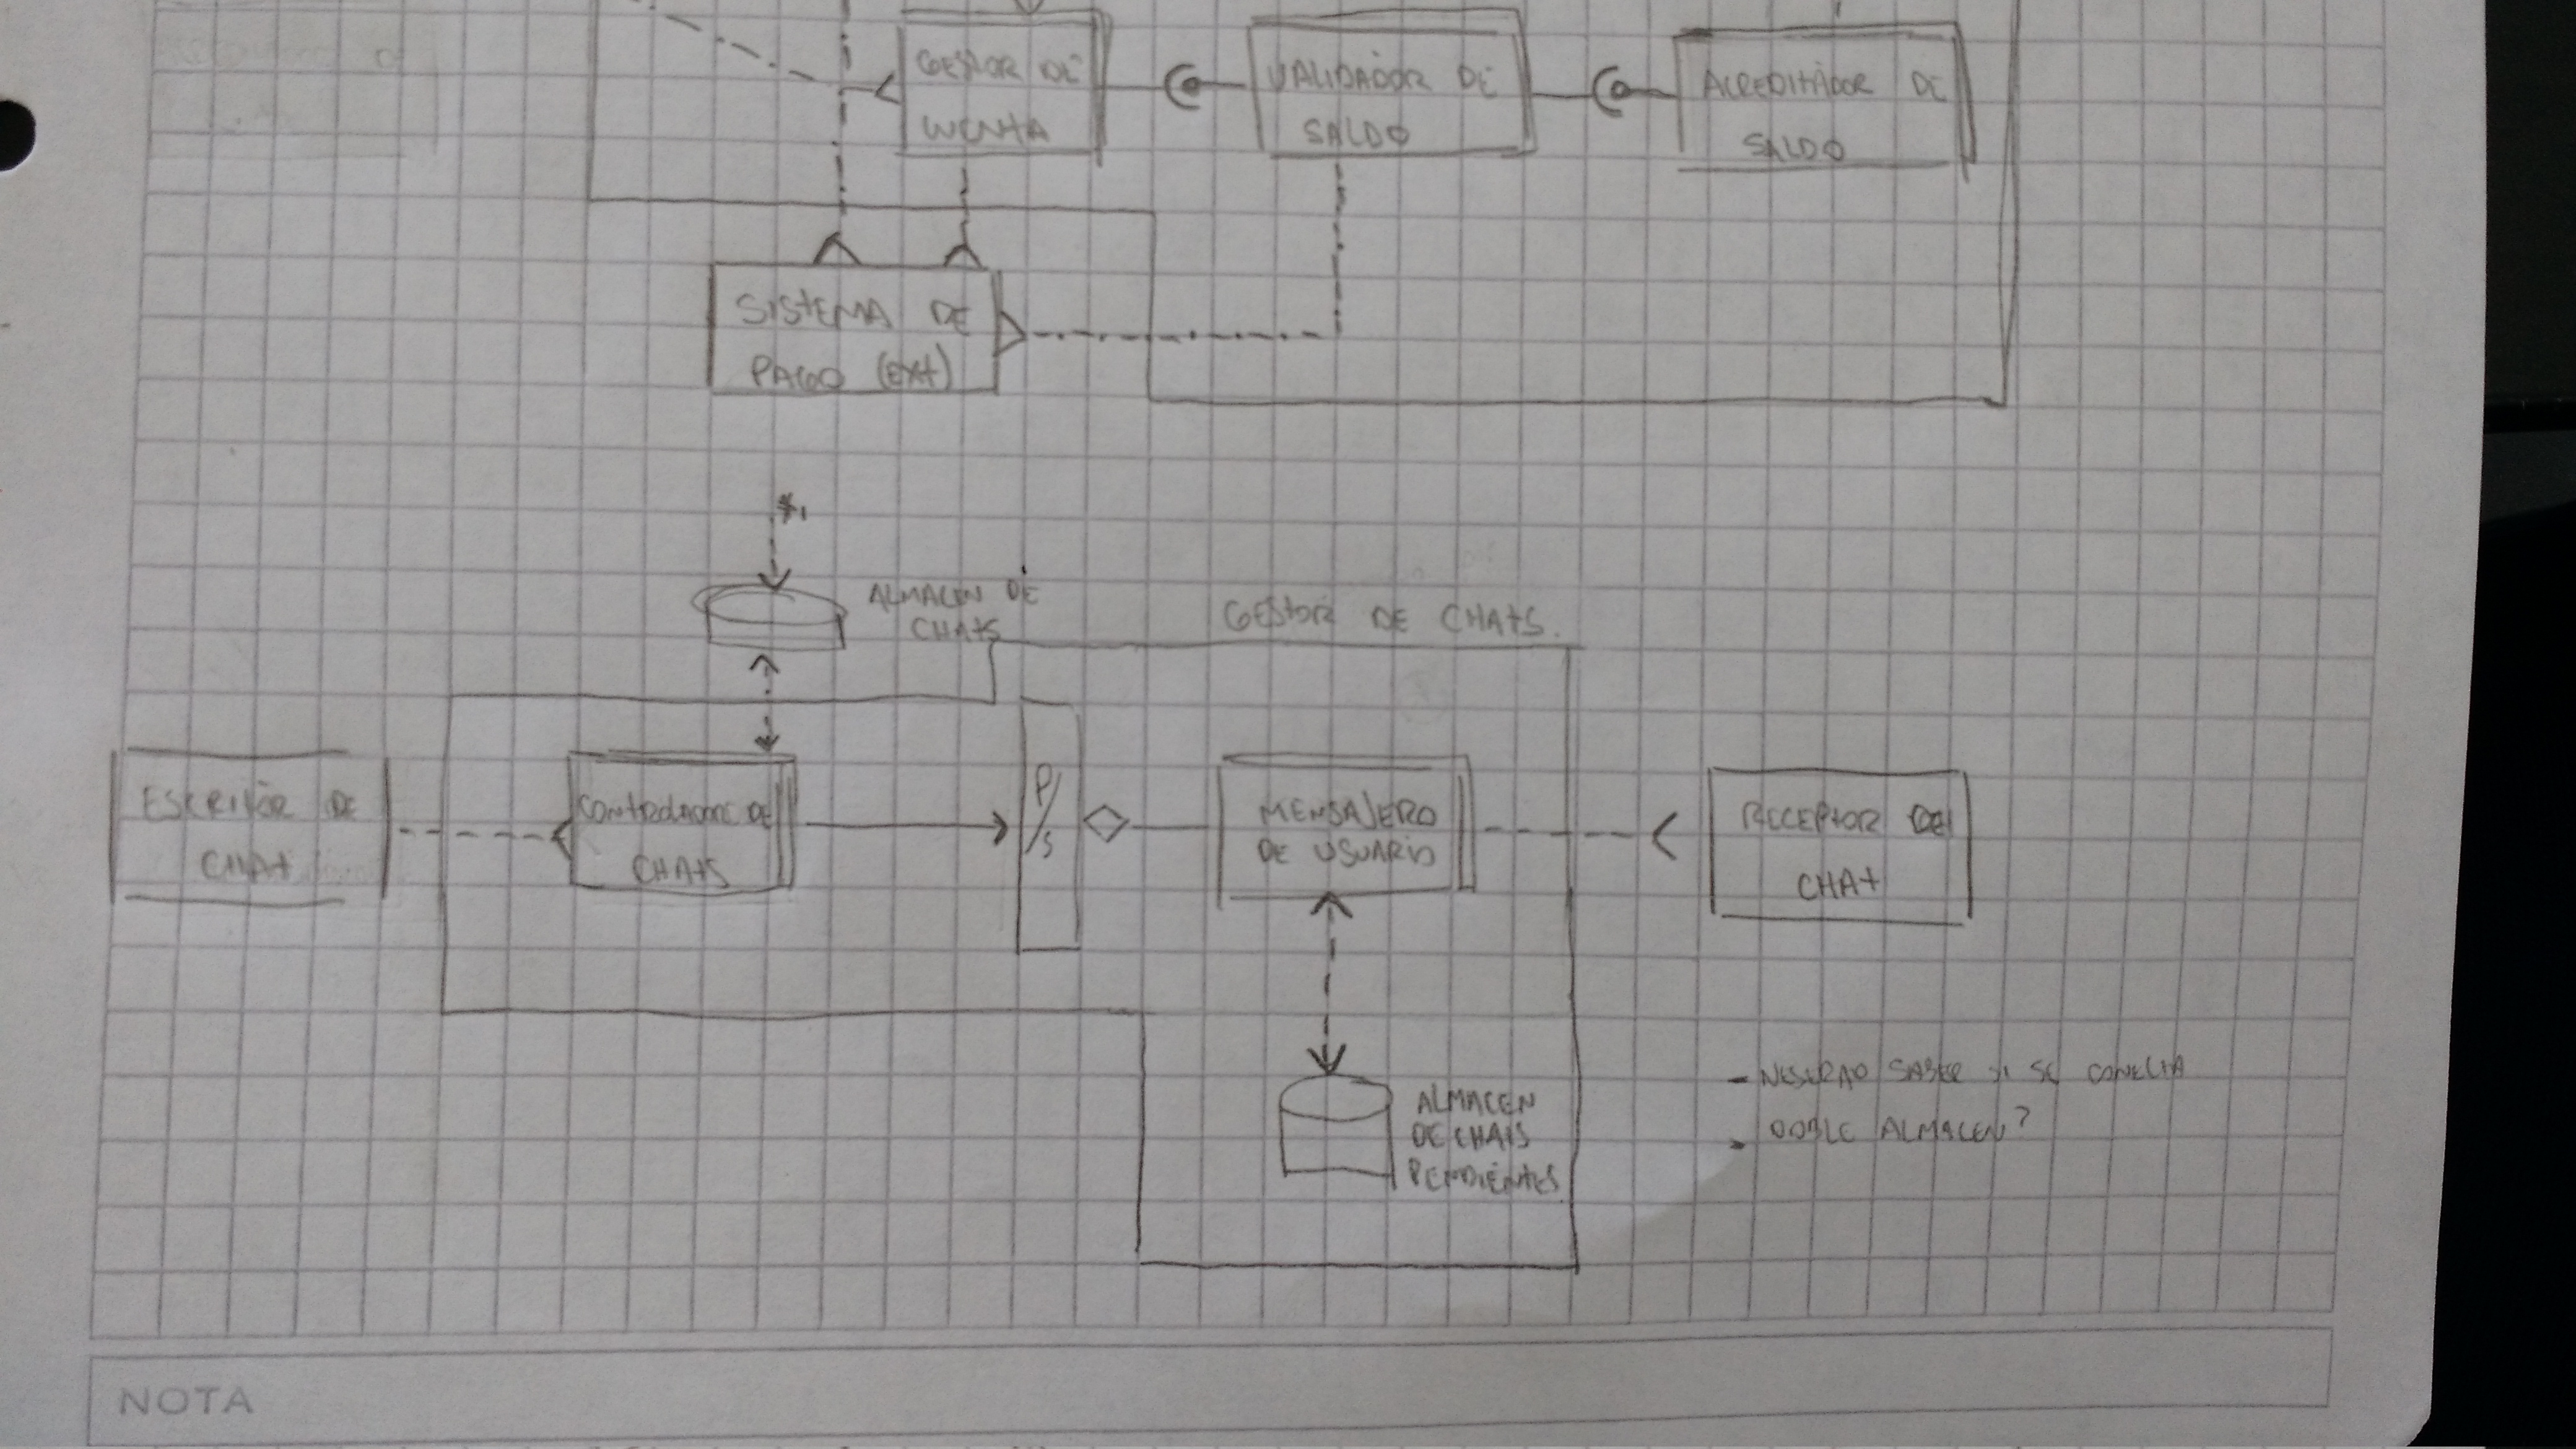 GESTOR DE
VALIDADOR DE
ACREDITADOR DE
SALDO
SALDO
SISTEMA DE
PAGO (EXT)
*1
ALMACEN DE
CHATS
GESTOR DE CHATS.
ESCRITOR DE
CHAT
CONTROLADOR DE
CHATS
P/S
MENSAJERO
DE USUARIO
RECEPTOR DE
CHAT
ALMACEN
DE CHATS
PENDIENTES
- SABER SI SE CONECTA
- DOBLE ALMACEN?
NOTA